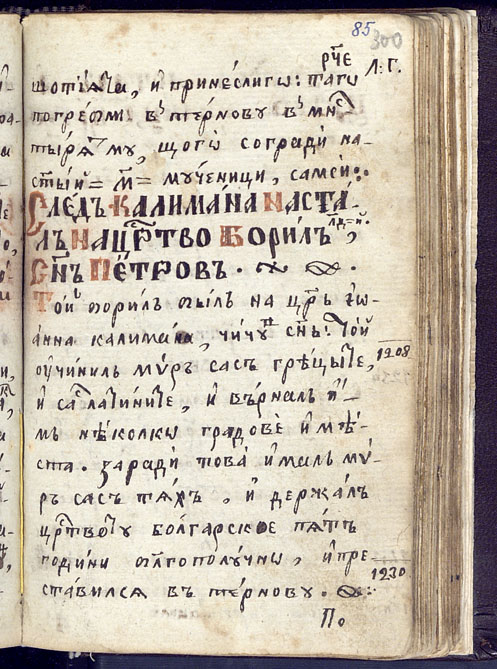 85
300
рч҃е
Л: Г.
щотїѧта, и принеслиго: таго
погребоми в' терновꙋ в' мн҃с
тырѧ тмꙋ, щого согради на-
ст҃ый = м҃ = мꙋченици, самси:
Следъ Калимана Наста-
лъ На цр҃тво Борилъ,
Сн҃ъ Петровъ.
Той борилъ былъ на цр҃ъ їѡ-
анна калимана, чичꙋ сн҃ъ: Той
ꙋчинилъ мѵръ састъ грецыте,
1208
и сас латините, и върналъ и-
мъ нѣколкꙋ градове и мѣ-
ста. заради това ималъ мѵ-
ръ састъ тѧхъ, и держалъ
цр҃твотꙋ болгарское пѧтъ
години бл҃гополꙋчны, и пре-
1230
ставился въ терновꙋ.
По